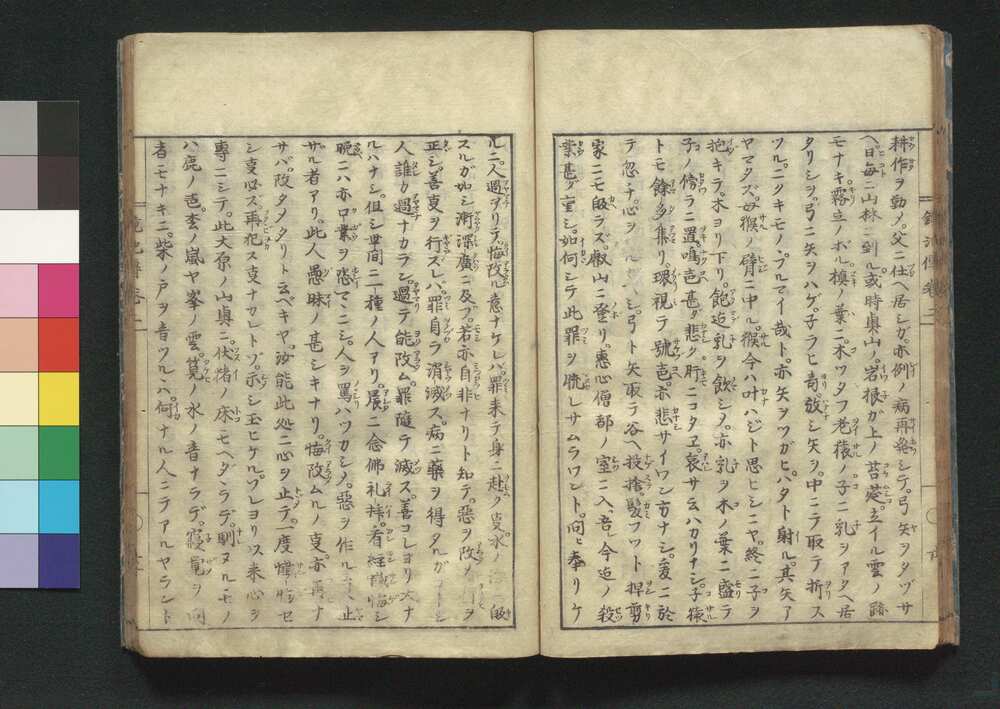 耕作ヲ勤ノ父ニ仕ヘ居シガ亦例ノ病再発シテ弓矢ヲタヅサ
ヘ日毎ニ山林ニ到ル或時奥山ノ岩根ガ上ノ苔莚立イル雲ノ跡
モナキ霧立ノボル槙ノ葉ニ木ツタフ老猿ノ子ニ乳ヲアタヘ居
タリシヲ弓ニ矢ヲハゲ子ラヒ寄放シ矢ヲ中ニテ取テ折ス
ツルニクキモノヽプルマイ哉ト亦矢ヲツガヒハタト射ル其矢ア
ヤマタズ母猴ノ臂ニ中ル猴今ハ叶ハジト思ヒシニヤ終ニ子ヲ
抱キラ木ヨリ下リ飽迄乳ヲ飲シメ亦乳ヲ木ノ葉ニ盛ラ
子ノ傍ラニ置鳴声甚ダ悲ク肝ニコタヱ哀サ云ハカリナシ子猿
トモ餘多集リ環視テ號声亦悲サイワン方ナシ爰ニ於
テ忽チ心ヲ シ弓ト矢取テ谷ヘ投捨髪フツト押剪
家ニモ皈ラズ叡山ニ登リ恵心僧都ノ室ニ入吾レ今迄ノ殺
業甚ダ重シ如何シテ此罪ヲ レサムラワント問ヒ奉リケ
ルニ人過アリテ悔改ル意ナケレバ罪来テ身ニ赴ク叓水ノ 皈
スルガ如シ漸深廣ニ及ブ若亦自非ナリト知テ惡ヲ改メ ヲ
正シ善叓ヲ行スレバ罪自ラ消滅ス病ニ藥ヲ得タルガ シ
人誰カ過ナカラン過テ能改ム罪随テ滅ス善コレヨリ大ナ
ルハナシ但シ世間ニ二種ノ人アリ晨ニ念佛礼拝看経 悔シ
晩ニハ亦口業ヲ恣マニシ人ヲ罵ハツカシメ惡ヲ作ル 止
ザル者アリ此人愚昧ノ甚シキナリ悔改ムルノ叓亦 ナ
サバ改タメタリト云ベキヤ汝能此処ニ心ヲ止テ一度懺悔セ
シ叓必ス再犯ス叓ナカレトゾ示シ玉ヒケルプレヨリス来心ヲ
專ニシテ此大原ノ山奥ニ伏猪ノ床モヘダヽラデ馴ヌルモノ
ハ鹿ノ声峯ノ嵐ヤ峯ノ雲筧ノ水ノ音ナラデ寝覚ヲ問
者ニモナキニ柴ノ戸ヲ音ツルヽハ何ナル人ニテアルヤラント